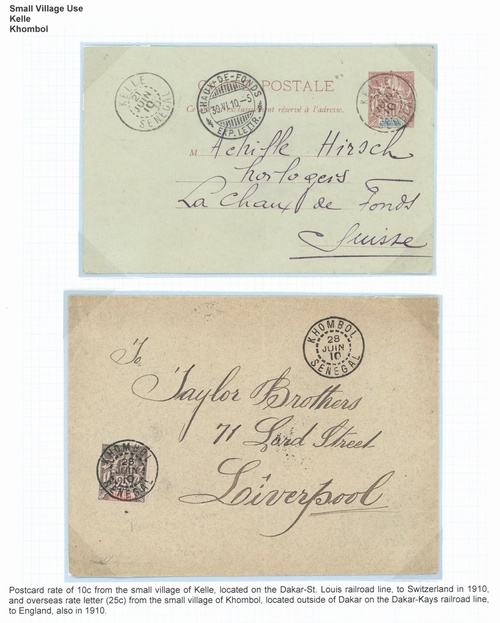 Small Village Use
Kelle
Khombol
KELLE
21
JUIN
10
SENEGAL
CHAUX-DE-FONDS
30.VI.10-5
EXP. LETTR.
POSTALE
réservé à l'adresse.
KELLE
10
M Achille Hirsch
horlogers
La Chaux de Fonds
Suisse
KHOMBOL
28
JUIN
10
SENEGAL
To
Taylor Brothers
71 Lord Street
Liverpool
KHOMBOL
28
JUIN
10
SENEGAL
Postcard rate of 10c from the small village of Kelle, located on the Dakar-St. Louis railroad line, to Switzerland in 1910,
and overseas rate letter (25c) from the small village of Khombol, located outside of Dakar on the Dakar-Kays railroad line,
to England, also in 1910.